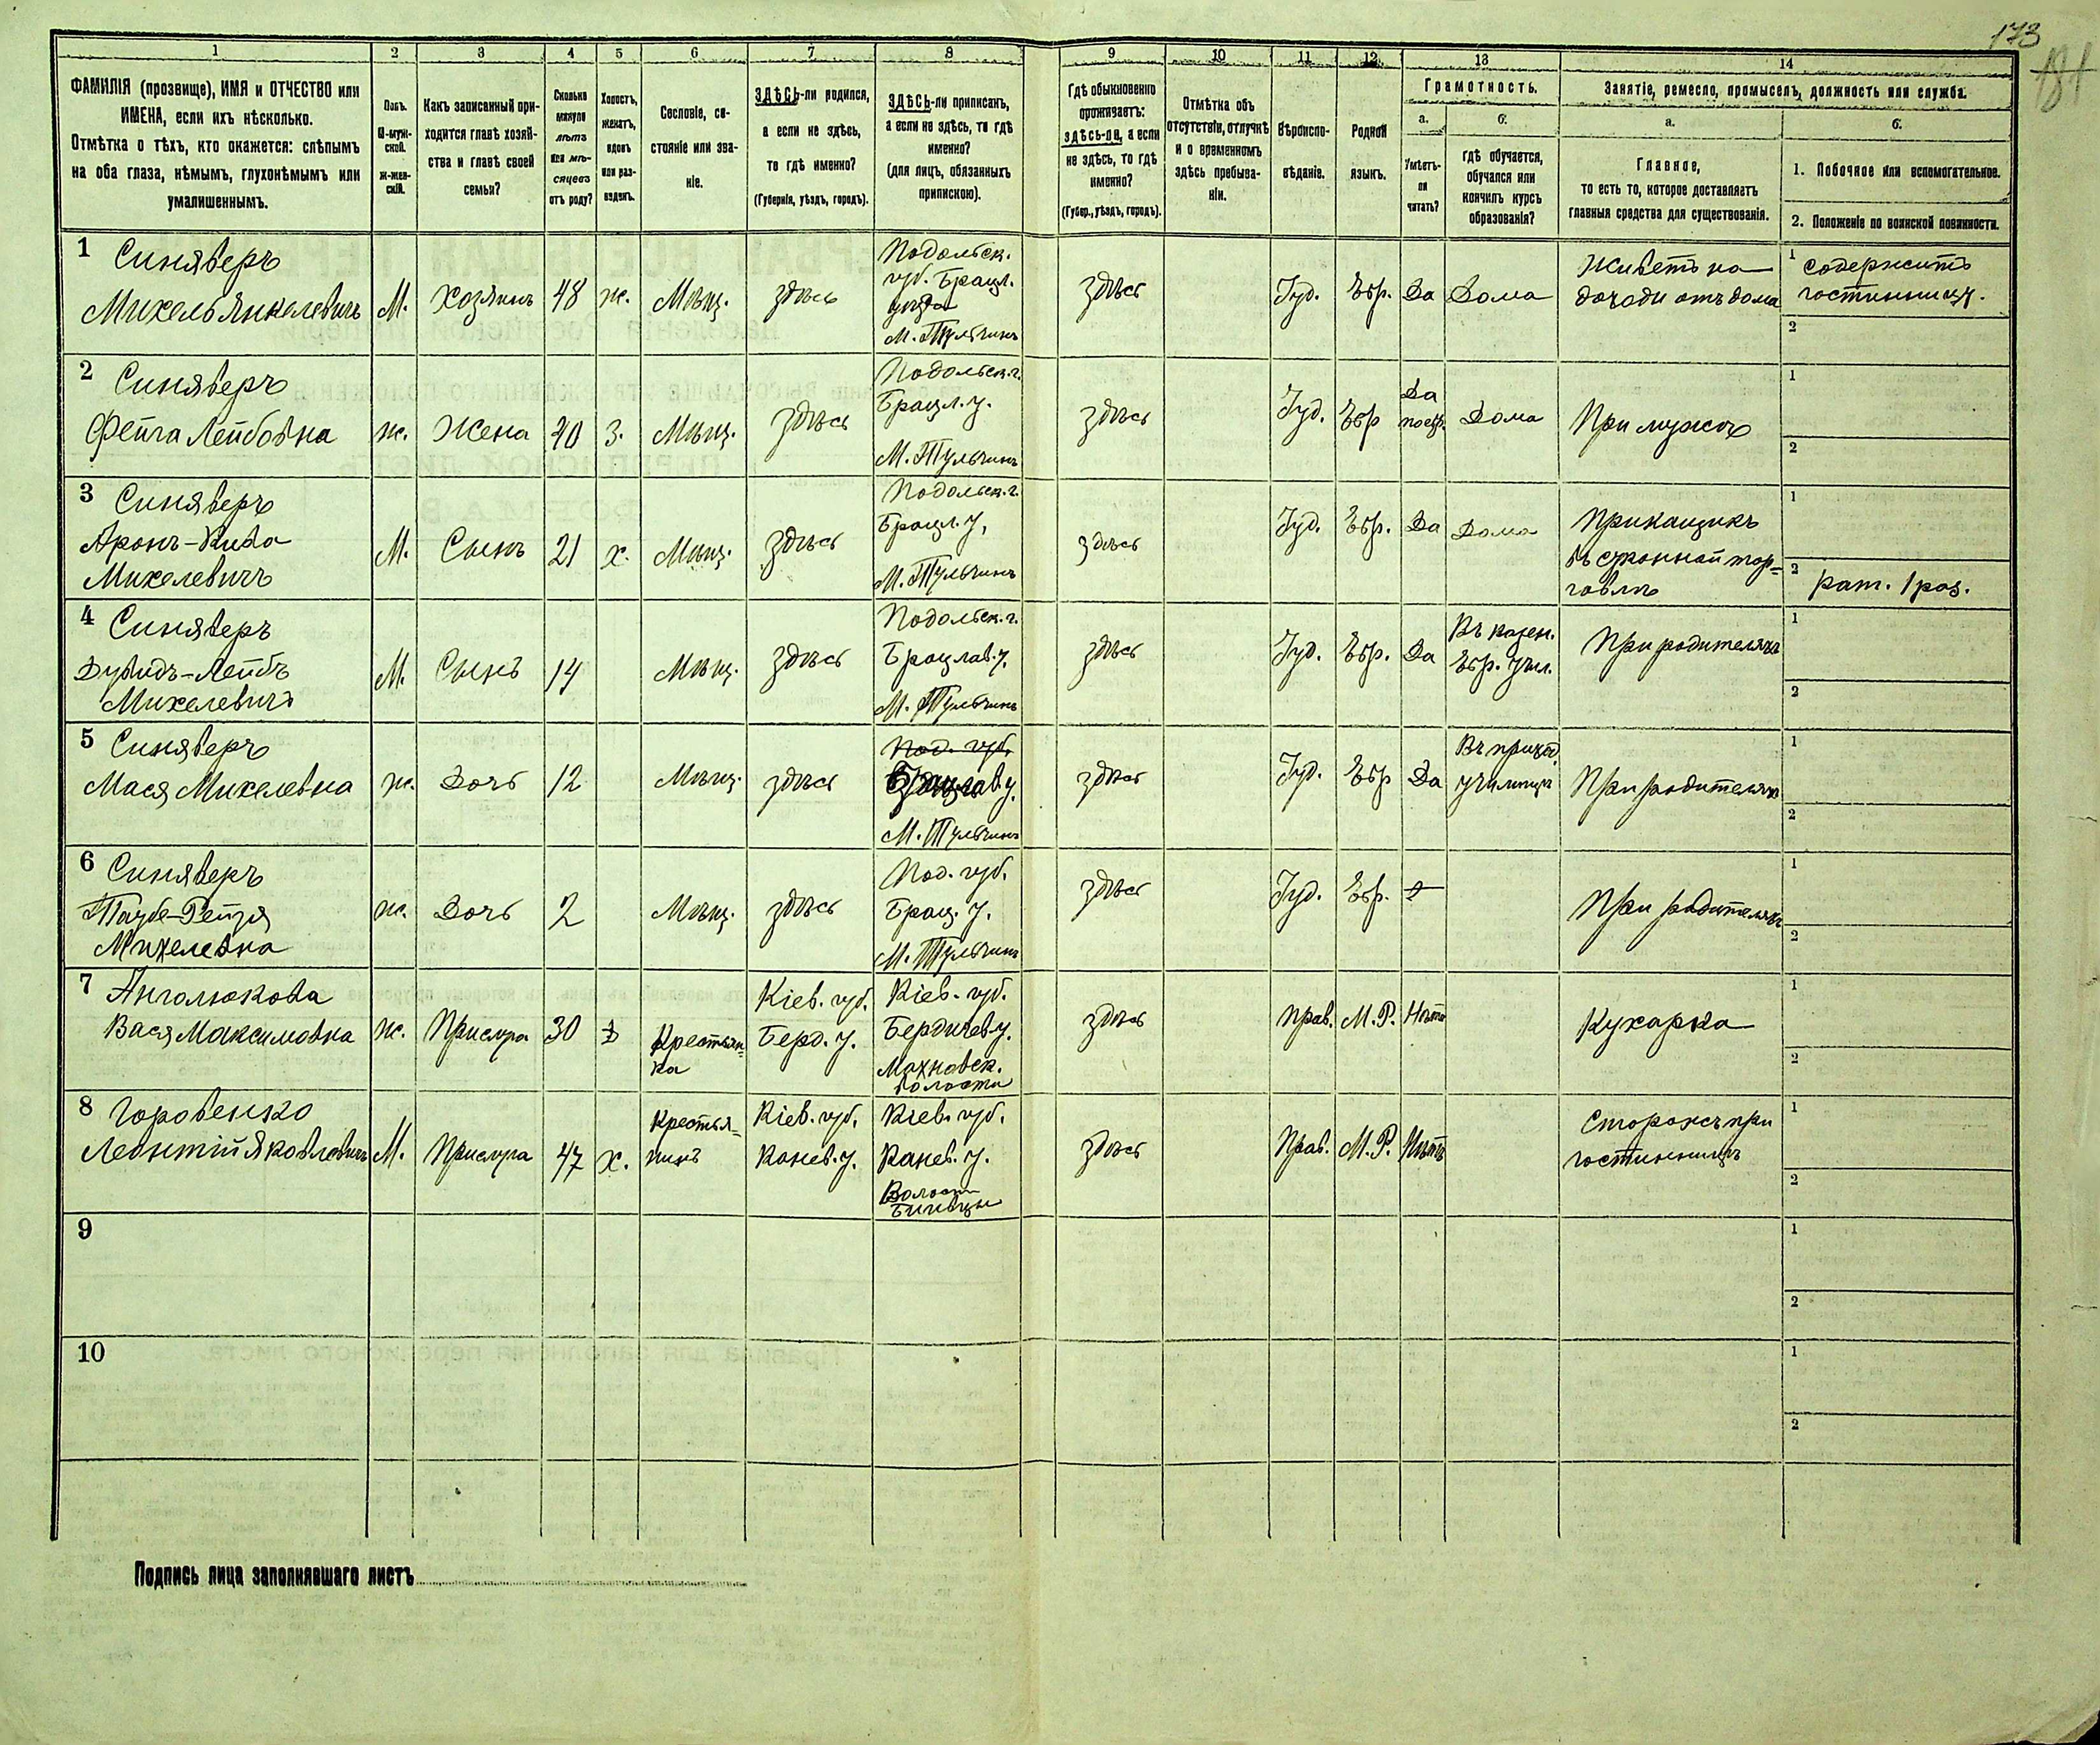 173
181
1 2 3 4 5 6 7 8 9 10 11 12 13 14
ФАМИЛІЯ (прозвище), ИМЯ и ОТЧЕСТВО или
ИМЕНА, если ихъ нѣсколько.
Отмѣтка о тѣхъ, кто окажется: слѣпымъ
на оба глаза, нѣмымъ, глухонѣмымъ или
умалишеннымъ.
Полъ.
М-муж-
ской.
Ж-жен-
скій.
Какъ записанный при-
ходится главѣ хозяй-
ства и главѣ своей
семьи?
Сколько
минуло
лѣтъ
или мѣ-
сяцевъ
отъ роду?
Холостъ,
женатъ,
вдовъ
или раз-
веденъ.
Сословіе, со-
стояніе или зва-
ніе.
ЗДѢСЬ-ли родился,
а если не здѣсь,
то гдѣ именно?
(Губернія, уѣздъ, городъ).
ЗДѢСЬ-ли приписанъ,
а если не здѣсь, то гдѣ
именно?
(для лицъ, обязанныхъ
припискою).
Гдѣ обыкновенно
проживаетъ:
здѣсь-ли, а если
не здѣсь, то гдѣ
именно?
(Губер., уѣздъ, городъ).
Отмѣтка объ
отсутствіи, отлучкѣ
и о временномъ
здѣсь пребыва-
ніи.
Вѣроиспо-
вѣданіе.
Родной
языкъ.
Грамотность.
а.
Умѣетъ-
ли
читать?
б.
гдѣ обучается,
обучался или
кончилъ курсъ
образованія?
Занятіе, ремесло, промыселъ, должность или служба.
а.
Главное,
то есть то, которое доставляетъ
главныя средства для существованія.
б.
1. Побочное или вспомогательное.
2. Положеніе по воинской повинности.
1 Синяверъ
Михель Янкелевичъ
М.
Хозяинъ
48
ж.
Мѣщ.
здѣсь
Подольск.
губ. Брацл.
уѣзда
М. Тульчинъ
здѣсь
Іуд.
Евр.
Да
Дома
Живетъ на
доходи отъ дома
1 содержитъ
гостинницу.
2
2 Синяверъ
Фейга Лейбовна
ж.
Жена
40
З.
Мѣщ.
здѣсь
Подольск. г.
Брацл. у.
М. Тульчинъ
здѣсь
Іуд.
Евр
Да
Дома
При мужѣ
1
2
3 Синяверъ
Аронъ-Кива
Михелевичъ
М.
Сынъ
21
х.
Мѣщ.
здѣсь
Подольск. г.
Брацл. у.
М. Тульчинъ
здѣсь
Іуд.
Евр.
Да
Дома
Прикащикъ
въ суконной тор-
говлѣ
1
2 рат. 1 раз.
4 Синяверъ
Дувидъ-Лейбъ
Михелевичъ
М.
Сынъ
14
Мѣщ.
здѣсь
Подольск. г.
Брацлав. у.
М. Тульчинъ
здѣсь
Іуд.
Евр.
Да
Въ казен.
Евр. учил.
При родителяхъ
1
2
5 Синяверъ
Мася Михелевна
ж.
Дочь
12
Мѣщ.
здѣсь
Под. губ.
Брацлав у.
М. Тульчинъ
здѣсь
Іуд.
Евр
Да
Въ приход.
училищѣ
При родителяхъ
1
2
6 Синяверъ
Таубе-Рейзя
Михелевна
ж.
Дочь
2
Мѣщ.
здѣсь
Под. губ.
Брац. у.
М. Тульчинъ
здѣсь
Іуд.
Евр.
При родителяхъ
1
2
7 Анголюкова
Вася Максимовна
ж.
Прислуга
30
Крестьян-
ка
Кіев. губ.
Берд. у.
Кіев. губ.
Бердичев у.
Махновск.
волости
здѣсь
Прав.
М. Р.
Нѣтъ
Кухарка
1
2
8 Горовенко
Леонтій Яковлевичъ
М.
Прислуга
47
х.
Крестья-
нинъ
Кіев. губ.
Канев. у.
Кіев. губ.
Канев. у.
Волости
здѣсь
Прав.
М. Р.
Нѣтъ
Сторожъ при
гостинницѣ
1
2
9
1
2
10
1
2
Подпись лица заполнявшаго листъ